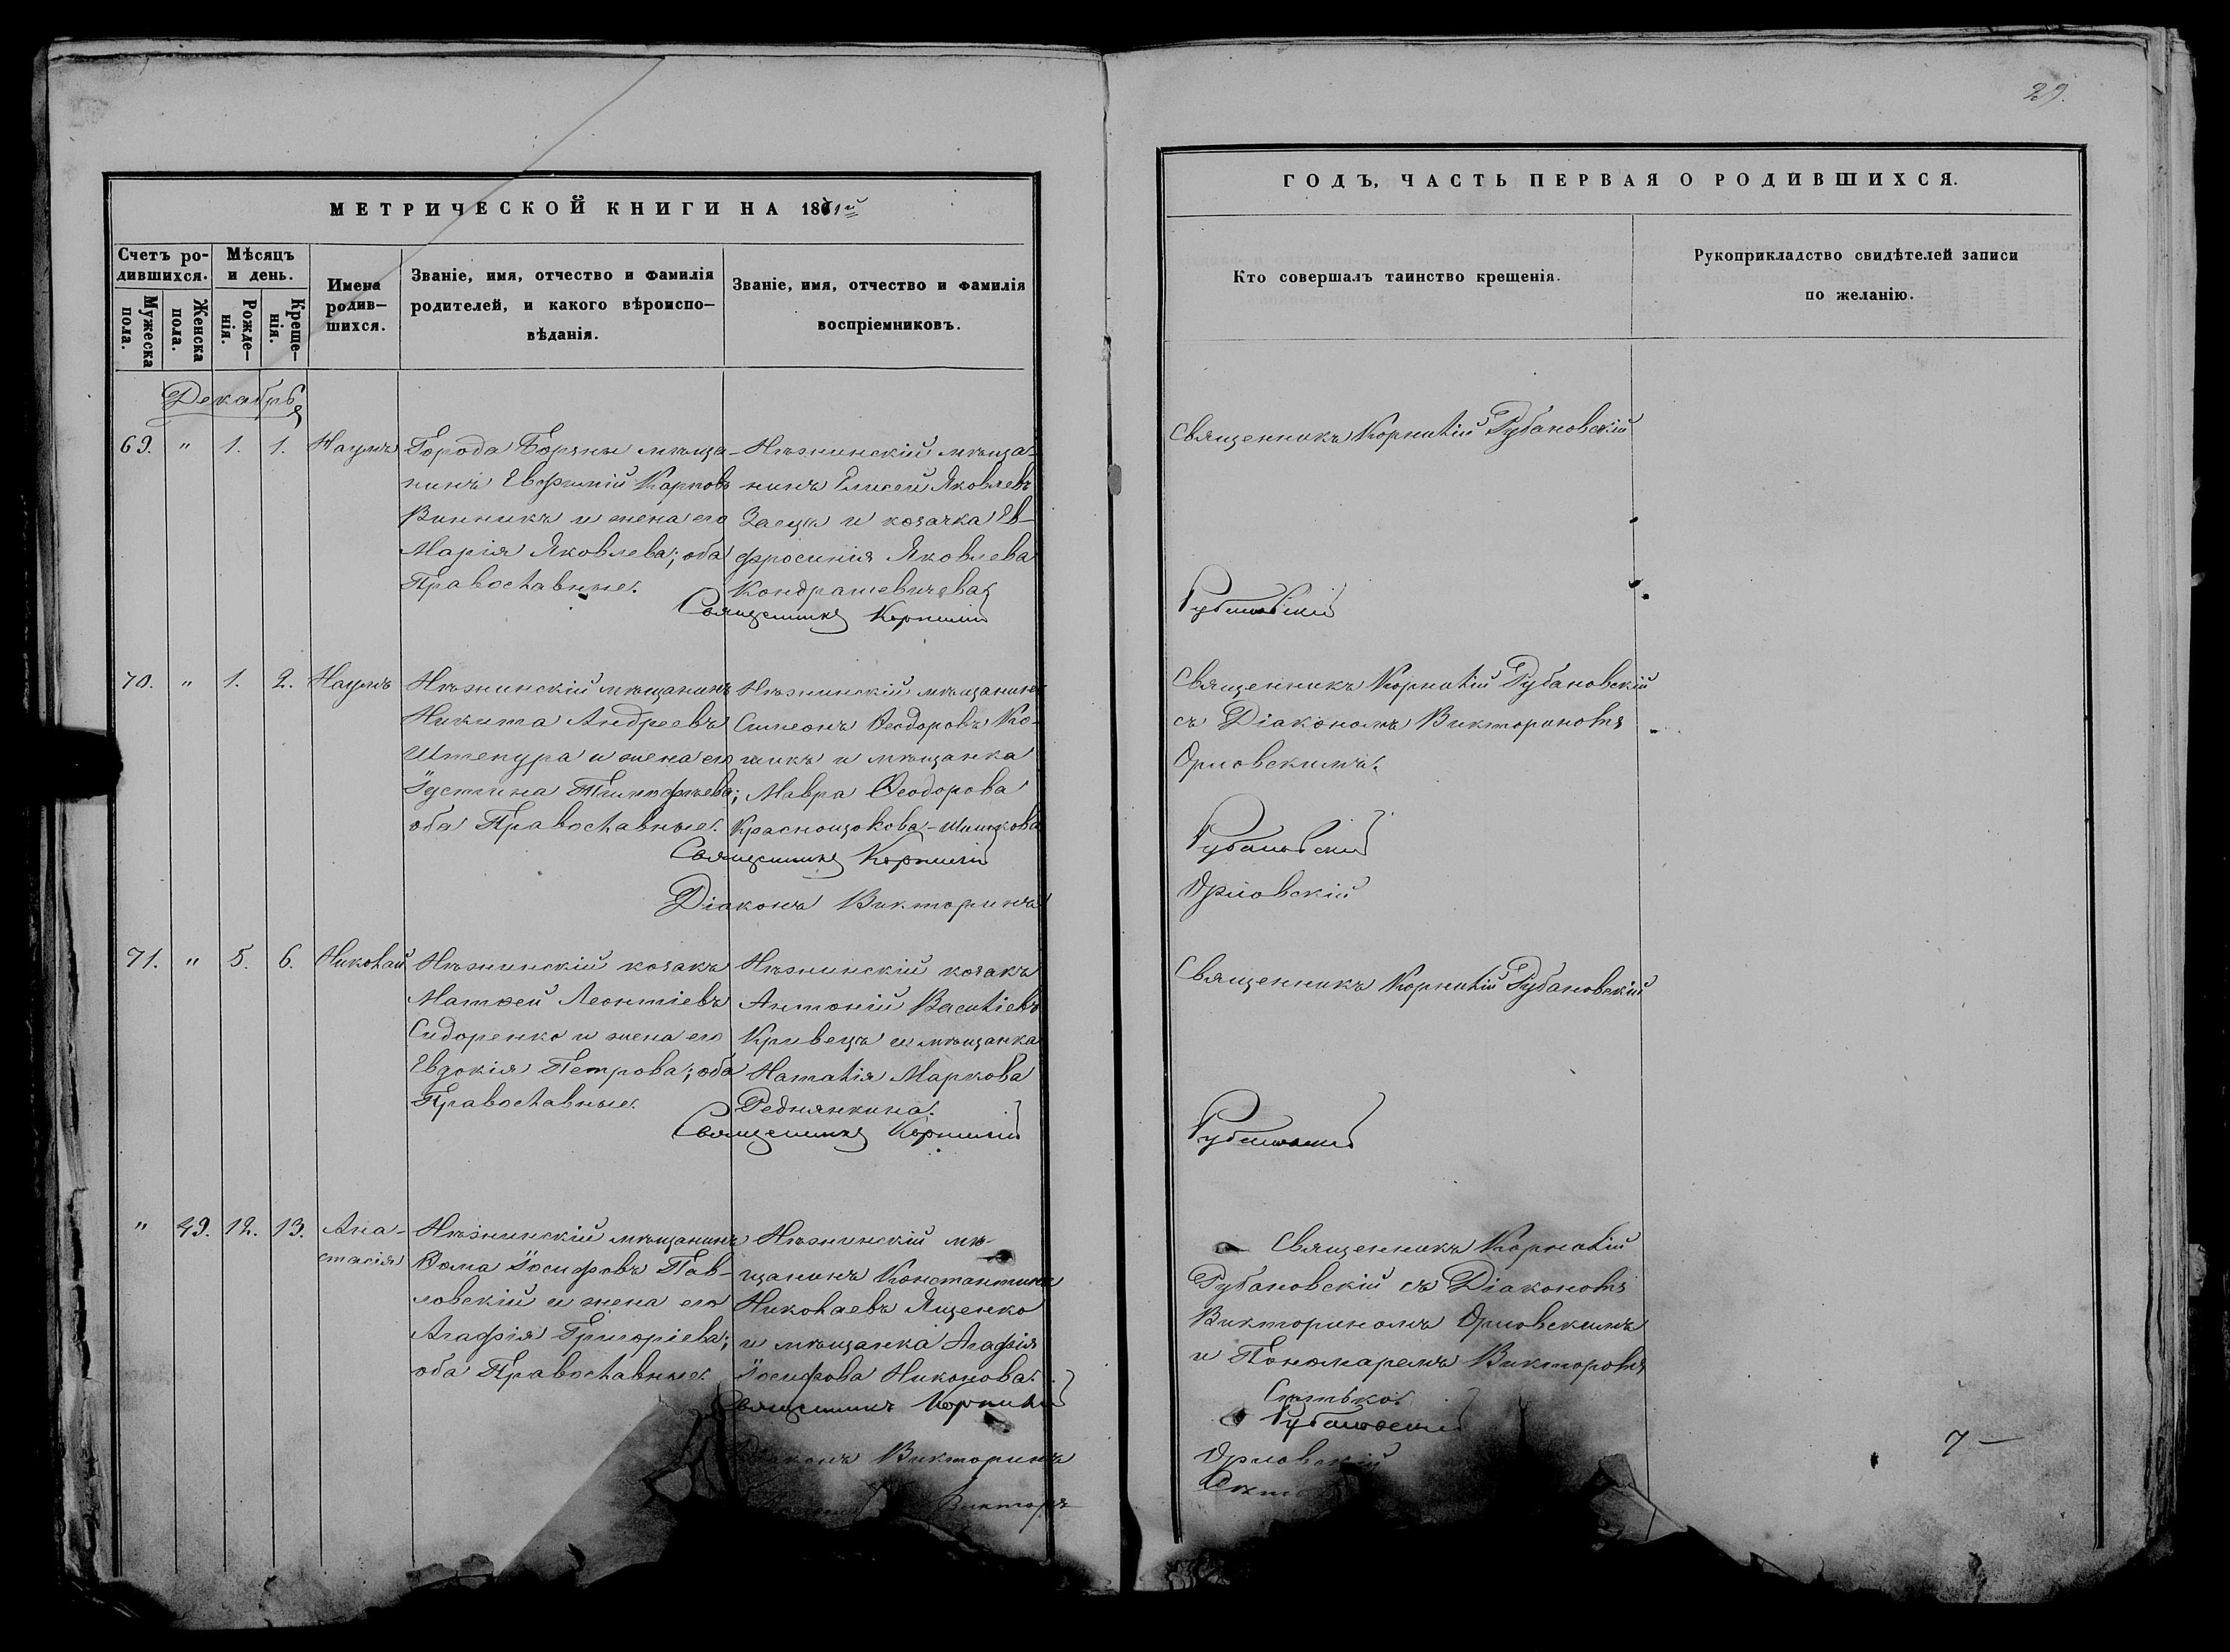 29.
МЕТРИЧЕСКОЙ КНИГИ НА 1861й
ГОДЪ, ЧАСТЬ ПЕРВАЯ О РОДИВШИХСЯ.
Счетъ ро-
дившихся.
Мужеска
пола.
Женска
пола.
Мѣсяцъ
и день.
Рожде-
нія.
Креще-
нія.
Имена
родив-
шихся.
Званіе, имя, отчество и фамилія
родителей, и какого вѣроиспо-
вѣданія.
Званіе, имя, отчество и фамилія
воспріемниковъ.
Кто совершалъ таинство крещенія.
Рукоприкладство свидѣтелей записи
по желанію.
Декабрь
69. " 1. 1. Наумъ
Города Борзны мѣща-
нинъ Евфимій Карповъ
Винникъ и жена его
Марія Яковлева; оба
Православные.
Нѣжинскій мѣща-
нинъ Елисей Яковлевъ
Заецъ и козачка Ев-
фросинія Яковлева
Кондрашевичева.
Священникъ Корнилій Рубановскій
Священникъ Корнилій
Рубановскій
70. " 1. 2. Наумъ
Нѣжинскій мѣщанинъ
Никита Андреевъ
Штепура и жена его
Іустина Тимофѣева;
оба Православные.
Нѣжинскій мѣщанинъ
Симеонъ Ѳеодоровъ Ко-
шикъ и мѣщанка
Мавра Ѳеодорова
Краснощокова-
Священникъ Корнилій Рубановскій
съ Діакономъ Викториномъ
Орловскимъ.
Священникъ Корнилій
Рубановскій
Діаконъ Викторинъ
Орловскій
71. " 5. 6. Николай
Нѣжинскій козакъ
Матѳей Леонтіевъ
Сидоренко и жена его
Евдокія Петрова; оба
Православные.
Нѣжинскій козакъ
Антоній Василіевъ
Кривецъ и мѣщанка
Наталія Маркова
Реднянкина.
Священникъ Корнилій Рубановскій
Священникъ Корнилій
Рубановскій
" 49. 12. 13. Ана-
стасія
Нѣжинскій мѣщанинъ
Ѳома Іосифовъ Пав-
ловскій и жена его
Агафія Григоріева;
оба Православные.
Нѣжинскій мѣ-
щанинъ Константинъ
Николаевъ Яценко
и мѣщанка Агафія
Іосифова Никонова.
Священникъ Корнилій
Рубановскій съ Діакономъ
Викториномъ Орловскимъ
и Пономаремъ Викторомъ
Священникъ Корнилій
Рубановскій
Діаконъ Викторинъ
Орловскій
Викторъ
7 —